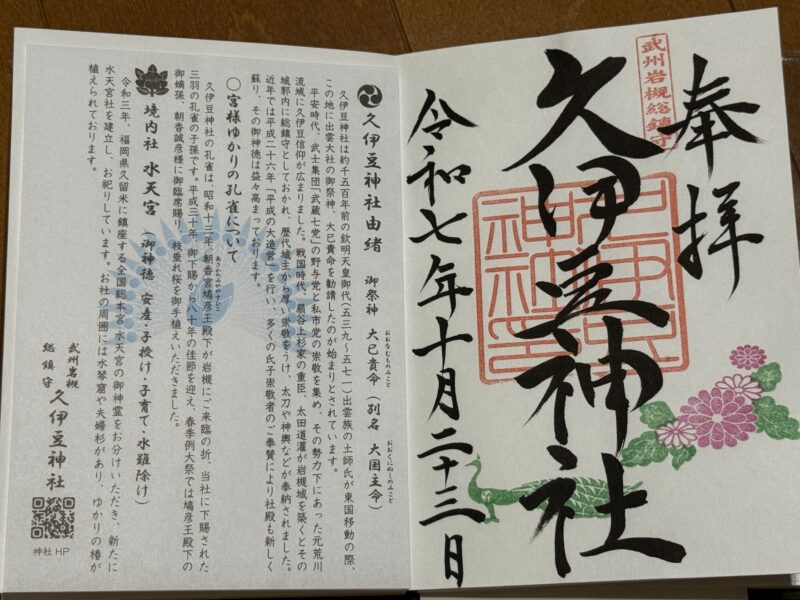 奉拝
武州岩槻総鎮守
久伊豆神社
令和七年十月二十三日
久伊豆神社由緒 御祭神 大己貴命(別名 大国主命)
おおなむちのみこと
おおくにぬしのみこと
久伊豆神社は約千五百年前の欽明天皇御代(五三九~五七一)出雲族の土師氏が東国移動の際、
この地に出雲大社の御祭神、大己貴命を勧請したのが始まりとされています。
平安時代、武士集団「武蔵七党」の野与党と私市党の崇敬を集め、その勢力下にあった元荒川
流域に久伊豆信仰が広まりました。戦国時代、扇谷上杉家の重臣、太田道灌が岩槻城を築くとその
城郭内に総鎮守としておかれ、歴代城主から厚い崇敬をうけ、太刀や神輿などが奉納されました。
近年では平成二十六年「平成の大造営」を行い、多くの氏子崇敬者のご奉賛により社殿も新しく
蘇り、その御神徳は益々高まっております。
〇宮様ゆかりの孔雀について
あさかのみややすひこ
久伊豆神社の孔雀は、昭和十三年、朝香宮鳩彦王殿下が岩槻にご来臨の折、当社に下賜された
三羽の孔雀の子孫です。平成三十年、御下賜から八十年の佳節を迎え、春季例大祭では鳩彦王殿下の
御嫡孫、朝香誠彦様に御臨席賜り、枝垂れ桜を御手植えいただきました。
境内社 水天宮(御神徳 安産・子授け・子育て・水難除け)
令和三年、福岡県久留米に鎮座する全国総本宮 水天宮の御神霊をお分けいただき、新たに
水天宮社を建立し、お祀りしています。お社の周囲には水琴窟や夫婦杉があり、ゆかりの椿が
植えられております。
武州岩槻
総鎮守 久伊豆神社
神社HP